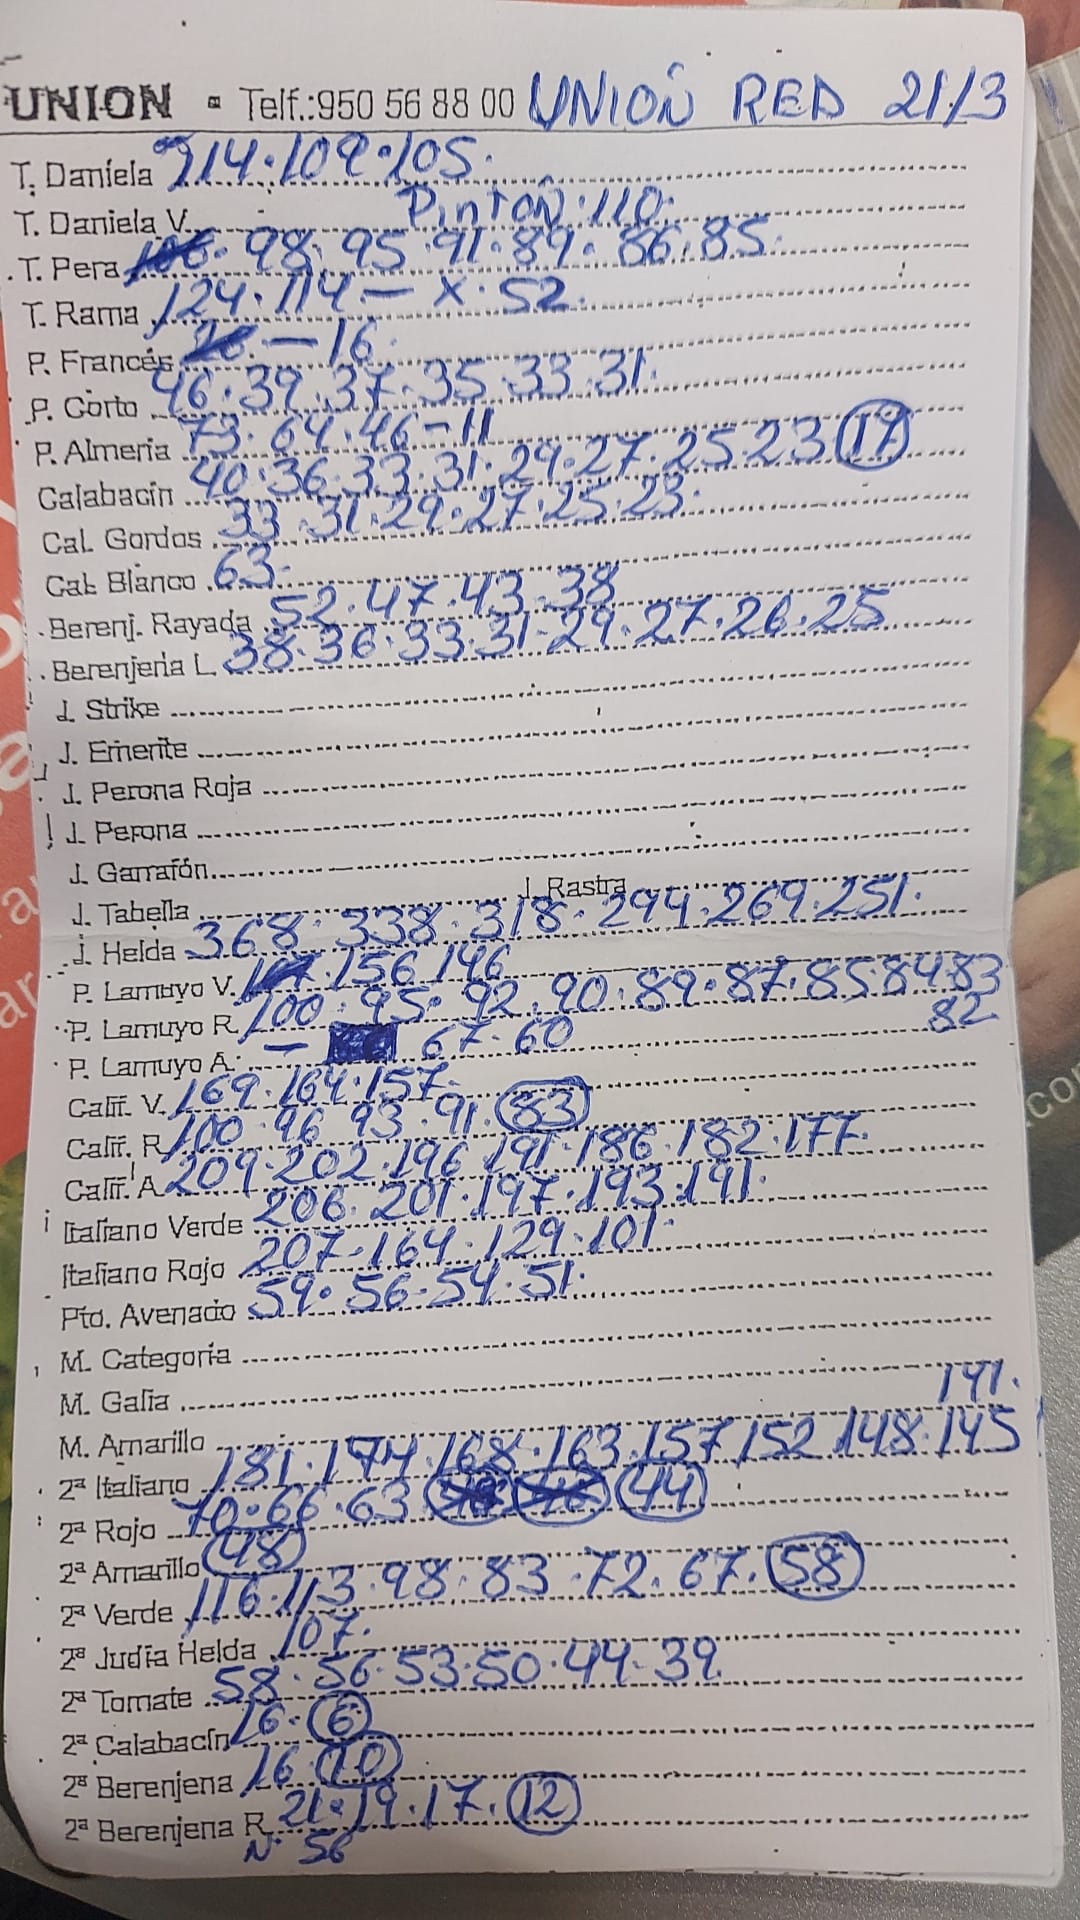 UNION - Telf.:950 56 88 00 UNION RED 21/3
T. Daniela 114.109.105.
T. Daniela V. Pinton.110.
T. Pera 98.95.91.89.86.85.
T. Rama 124.114.- X.52.
P. Francés - 16.
P. Corto 46.39.37.35.33.31.
P. Almeria 73.64.46-11
Calabacín 40.36.33.31.29.27.25.23 (17)
Cal. Gordos 33.31.29.27.25.23.
Cal. Blanco 63.
Berenj. Rayada 52.47.43.38
Berenjena L. 38.36.33.31.29.27.26.25
J. Strike
J. Emerite
J. Perona Roja
J. Perona
J. Garrafón
J. Tabella J. Rastra
J. Helda 368.338.318.294.269.251.
P. Lamuyo V. 156 146
P. Lamuyo R. 100.95.92.90.89.87.85.84.83
82
P. Lamuyo A. - 67.60
Calif. V. 169.164.157.
Calif. R. 100.96 93.91.(83)
Calif. A. 209.202.196.191.186.182.177.
Italiano Verde 206.201.197.193.191.
Italiano Rojo 207.164.129.101.
Pto. Avenado 59.56.54.51.
M. Categoria
M. Galia
141.
M. Amarillo
2ª Italiano 181.174.168.163.157 152.148.145
2ª Rojo 70.66.63 (44)
2ª Amarillo (48)
2ª Verde 116.113.98.83.72.67.(58)
2ª Judía Helda 107.
2ª Tomate 58.56.53.50.44.39
2ª Calabacín 16.(6)
2ª Berenjena 16.(10)
2ª Berenjena R. 21.19.17.(12)
N. 56